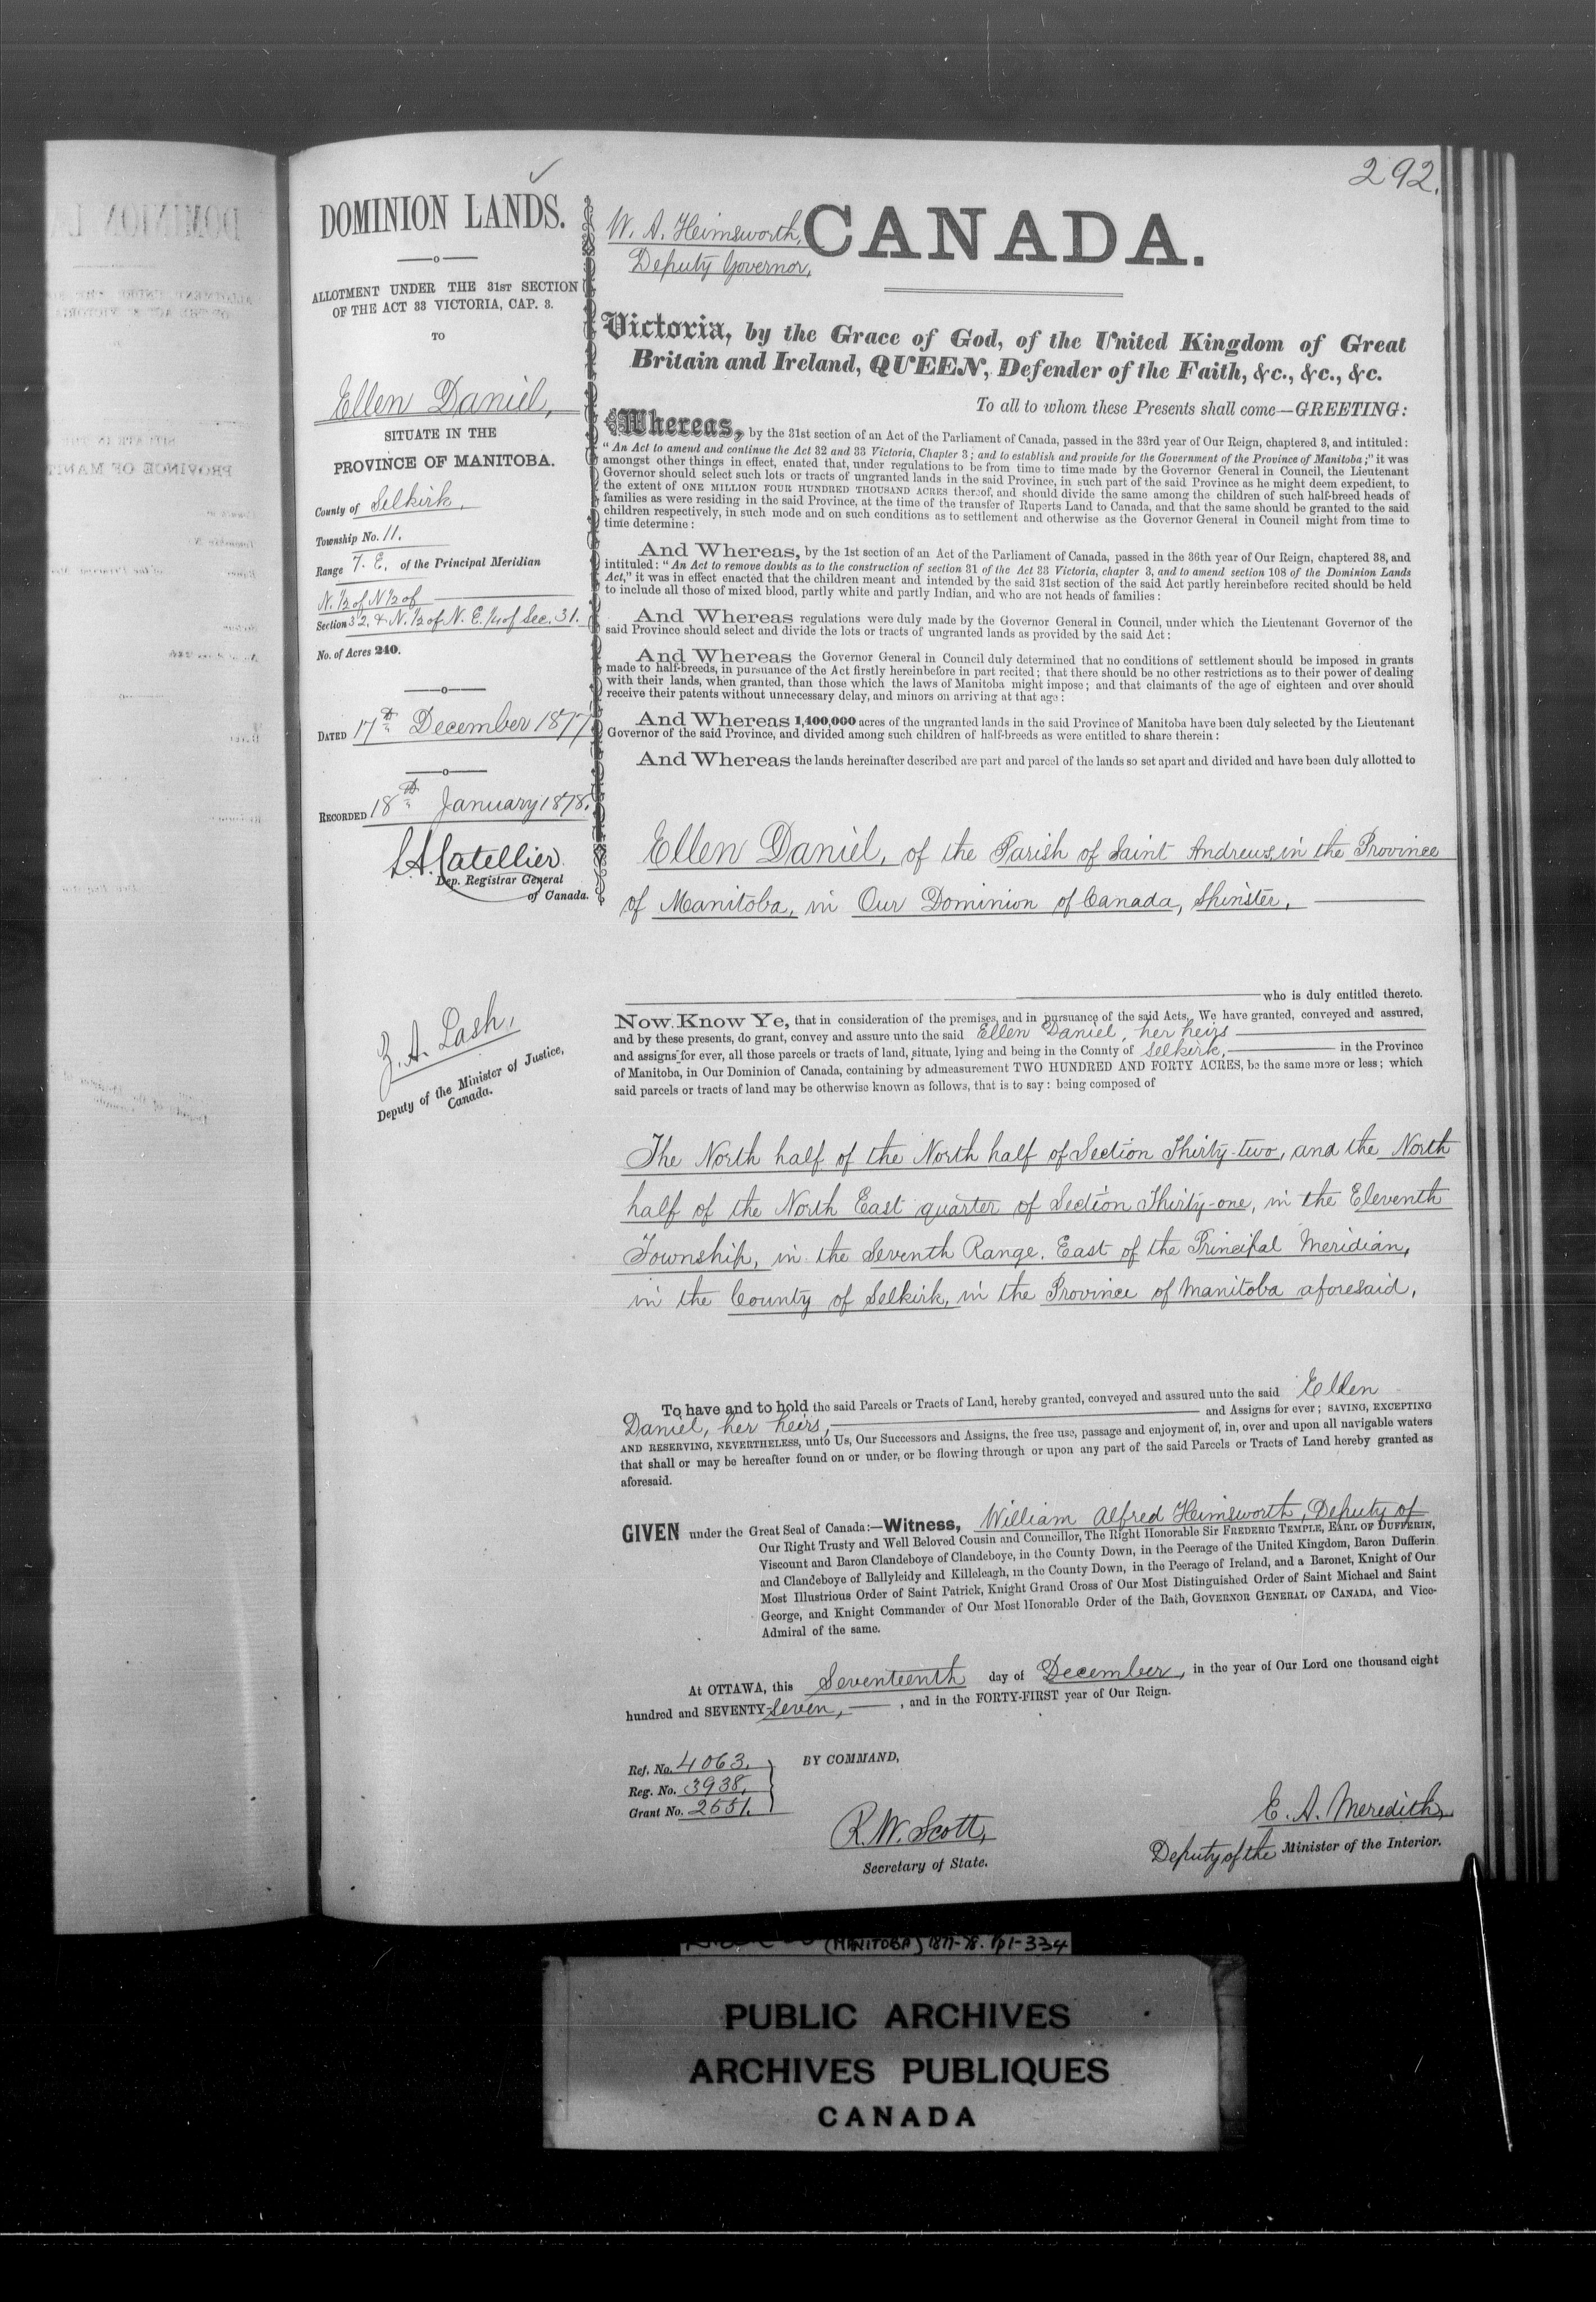 292.
DOMINION LANDS.
ALLOTMENT UNDER THE 31ST SECTION
OF THE ACT 33 VICTORIA, CAP. 3.
TO
Ellen Daniel,
SITUATE IN THE
PROVINCE OF MANITOBA.
County of Selkirk,
Township No. 11.
Range 7. E. of the Principal Meridian
N. ½ of N ½ of
Section 32, & N. ½ of N. E. ¼ of Sec. 31.
No. of Acres 240.
DATED 17th December 1877
RECORDED 18th January 1878.
L. A. Catellier
Dep. Registrar General
of Canada.
Z. A. Lash,
Deputy of the Minister of Justice,
Canada.
W. A. Heimsworth,
Deputy Governor,
CANADA.
Victoria, by the Grace of God, of the United Kingdom of Great
Britain and Ireland, QUEEN, Defender of the Faith, &c., &c., &c.
To all to whom these Presents shall come—GREETING:
Whereas, by the 31st section of an Act of the Parliament of Canada, passed in the 33rd year of Our Reign, chaptered 3, and intituled:
"An Act to amend and continue the Act 32 and 33 Victoria, Chapter 3; and to establish and provide for the Government of the Province of Manitoba;" it was
amongst other things in effect, enated that, under regulations to be from time to time made by the Governor General in Council, the Lieutenant
Governor should select such lots or tracts of ungranted lands in the said Province, in such part of the said Province as he might deem expedient, to
the extent of ONE MILLION FOUR HUNDRED THOUSAND ACRES thereof, and should divide the same among the children of such half-breed heads of
families as were residing in the said Province, at the time of the transfer of Ruperts Land to Canada, and that the same should be granted to the said
children respectively, in such mode and on such conditions as to settlement and otherwise as the Governor General in Council might from time to
time determine:
And Whereas, by the 1st section of an Act of the Parliament of Canada, passed in the 36th year of Our Reign, chaptered 38, and
intituled: "An Act to remove doubts as to the construction of section 31 of the Act 33 Victoria, chapter 3, and to amend section 108 of the Dominion Lands
Act," it was in effect enacted that the children meant and intended by the said 31st section of the said Act partly hereinbefore recited should be held
to include all those of mixed blood, partly white and partly Indian, and who are not heads of families:
And Whereas regulations were duly made by the Governor General in Council, under which the Lieutenant Governor of the
said Province should select and divide the lots or tracts of ungranted lands as provided by the said Act:
And Whereas the Governor General in Council duly determined that no conditions of settlement should be imposed in grants
made to half-breeds, in pursuance of the Act firstly hereinbefore in part recited; that there should be no other restrictions as to their power of dealing
with their lands, when granted, than those which the laws of Manitoba might impose; and that claimants of the age of eighteen and over should
receive their patents without unnecessary delay, and minors on arriving at that age:
And Whereas 1,400,000 acres of the ungranted lands in the said Province of Manitoba have been duly selected by the Lieutenant
Governor of the said Province, and divided among such children of half-breeds as were entitled to share therein:
And Whereas the lands hereinafter described are part and parcel of the lands so set apart and divided and have been duly allotted to
Ellen Daniel, of the Parish of Saint Andrews, in the Province
of Manitoba, in Our Dominion of Canada, Spinster,
who is duly entitled thereto.
Now Know Ye, that in consideration of the premises, and in pursuance of the said Acts, We have granted, conveyed and assured,
and by these presents, do grant, convey and assure unto the said Ellen Daniel, her heirs
and assigns for ever, all those parcels or tracts of land, situate, lying and being in the County of Selkirk, in the Province
of Manitoba, in Our Dominion of Canada, containing by admeasurement TWO HUNDRED AND FORTY ACRES, be the same more or less; which
said parcels or tracts of land may be otherwise known as follows, that is to say: being composed of
The North half of the North half of Section Thirty-two, and the North
half of the North East quarter of Section Thirty-one, in the Eleventh
Township, in the Seventh Range, East of the Principal Meridian,
in the County of Selkirk, in the Province of Manitoba aforesaid,
To have and to hold the said Parcels or Tracts of Land, hereby granted, conveyed and assured unto the said Ellen
Daniel, her heirs, and Assigns for ever; SAVING, EXCEPTING
AND RESERVING, NEVERTHELESS, unto Us, Our Successors and Assigns, the free use, passage and enjoyment of, in, over and upon all navigable waters
that shall or may be hereafter found on or under, or be flowing through or upon any part of the said Parcels or Tracts of Land hereby granted as
aforesaid.
GIVEN under the Great Seal of Canada:—Witness, William Alfred Heimsworth, Deputy of
Our Right Trusty and Well Beloved Cousin and Councillor, The Right Honorable Sir FREDERIC TEMPLE, EARL OF DUFFERIN,
Viscount and Baron Clandeboye of Clandeboye, in the County Down, in the Peerage of the United Kingdom, Baron Dufferin
and Clandeboye of Ballyleidy and Killeleagh, in the County Down, in the Peerage of Ireland, and a Baronet, Knight of Our
Most Illustrious Order of Saint Patrick, Knight Grand Cross of Our Most Distinguished Order of Saint Michael and Saint
George, and Knight Commander of Our Most Honorable Order of the Bath, GOVERNOR GENERAL OF CANADA, and Vice-
Admiral of the same.
At OTTAWA, this Seventeenth day of December, in the year of Our Lord one thousand eight
hundred and SEVENTY-Seven, , and in the FORTY-FIRST year of Our Reign.
Ref. No. 4063.
Reg. No. 3938.
Grant No. 2551.
BY COMMAND,
R. W. Scott,
Secretary of State.
E. A. Meredith,
Deputy of the Minister of the Interior.
(MANITOBA) 1877-78. pp1-334
PUBLIC ARCHIVES
ARCHIVES PUBLIQUES
CANADA